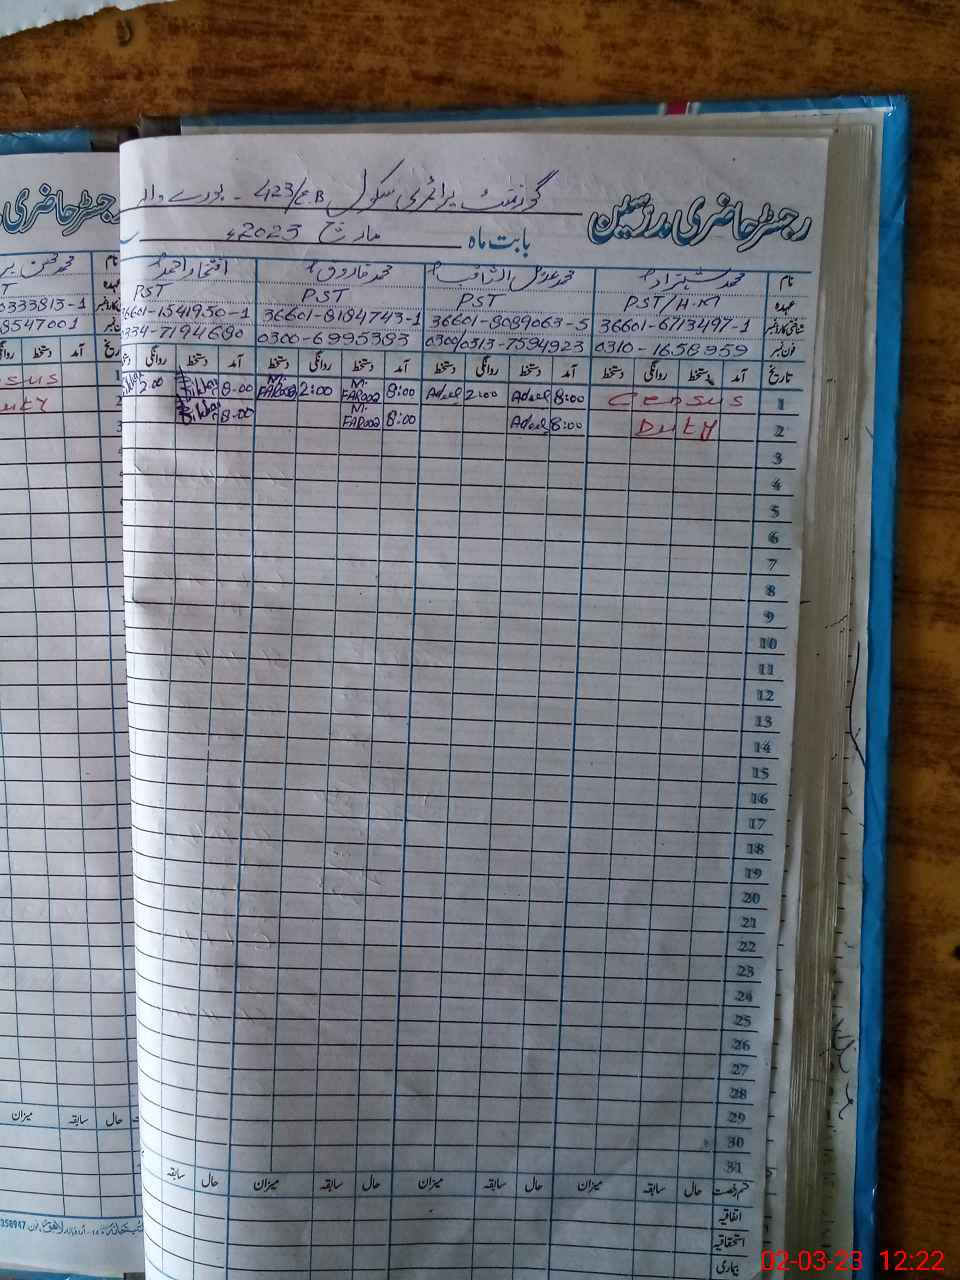 رجسٹر حاضری مدرسین
گورنمنٹ پرائمری سکول 423/E.B - بورے والہ
بابت ماہ مارچ 2023ء
نام محمد شہزاد محمد عدیل الثاقب محمد فاروق افتخار احمد
عہدہ PST/H.M PST PST PST
شناختی کارڈ نمبر 36601-6713497-1 36601-8089063-5 36601-8184743-1 36601-1541950-1
فون نمبر 0310-1658959 0300/0313-7594923 0300-6995383 0334-7194680
تاریخ آمد دستخط روانگی دستخط آمد دستخط روانگی دستخط آمد دستخط روانگی دستخط آمد دستخط روانگی دستخط
1 Census 8:00 Adeel 2:00 Adeel 8:00 M. FAROOQ 2:00 M. FAROOQ 8:00 Iftikhar 2:00
2 Duty 8:00 Adeel 8:00 M. FAROOQ 8:00 Iftikhar
3
4
5
6
7
8
9
10
11
12
13
14
15
16
17
18
19
20
21
22
23
24
25
26
27
28
29
30
31
قسم رخصت حال سابقہ میزان حال سابقہ میزان حال سابقہ میزان حال سابقہ
اتفاقیہ
استحقاقیہ
بیماری
رجسٹر حاضری
نام محمد حسن
0333813-1
8547001
آمد دستخط روانگی
حال سابقہ میزان
358947
02-03-23 12:22